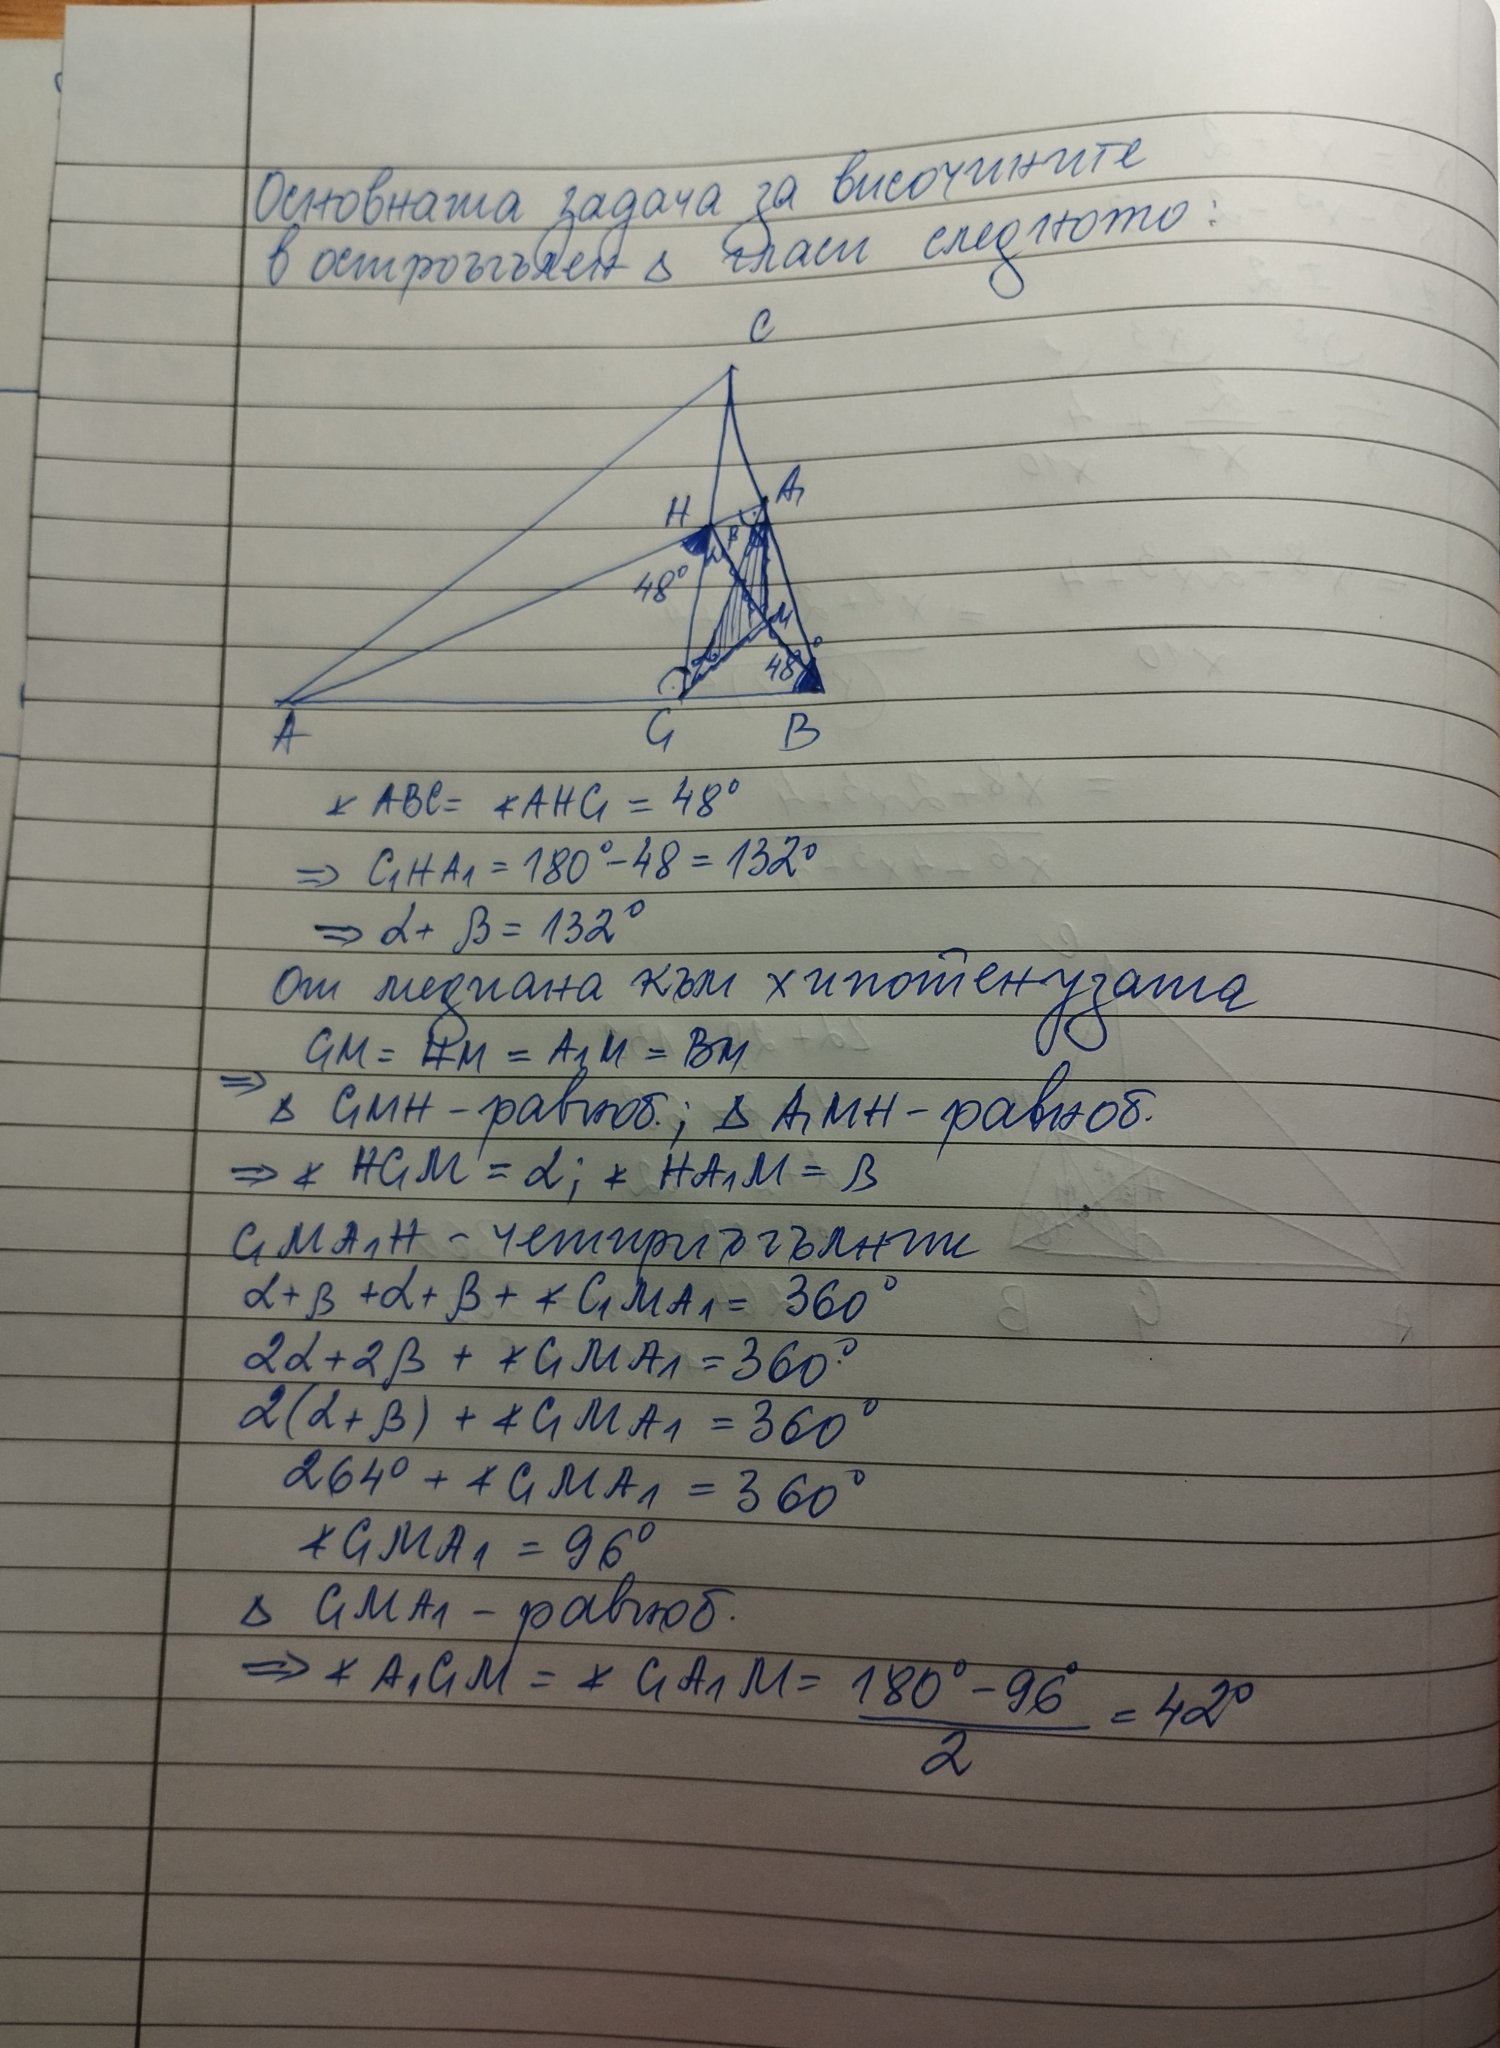 Основната задача за височините
в остроъгълен Δ гласи следното:
C
H
A₁
β
α
48°
M
48°
A
C₁
B
∢ ABC = ∢ AHC₁ = 48°
=> C₁HA₁ = 180° - 48 = 132°
=> α + β = 132°
От медиана към хипотенузата
C₁M = HM = A₁M = BM
=>
Δ C₁MH - равноб.; Δ A₁MH - равноб.
=> ∢ HC₁M = α; ∢ HA₁M = β
C₁MA₁H - четириъгълник
α + β + α + β + ∢ C₁MA₁ = 360°
2α + 2β + ∢ C₁MA₁ = 360°
2(α + β) + ∢ C₁MA₁ = 360°
264° + ∢ C₁MA₁ = 360°
∢ C₁MA₁ = 96°
Δ C₁MA₁ - равноб.
=> ∢ A₁C₁M = ∢ C₁A₁M = 180° - 96° / 2 = 42°